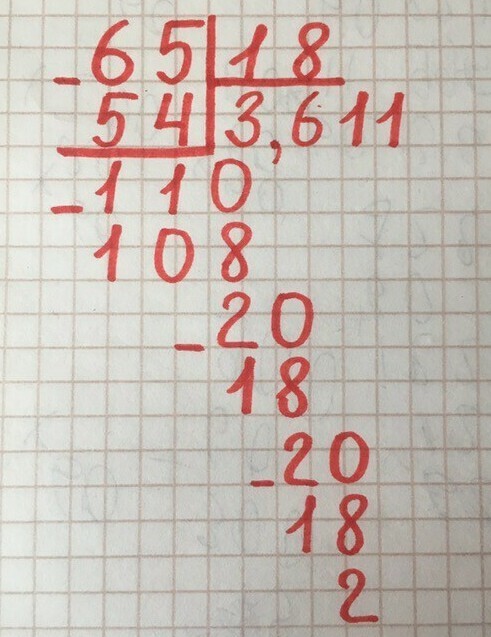 -65|18
54|3,611
-110
108
-20
18
-20
18
2